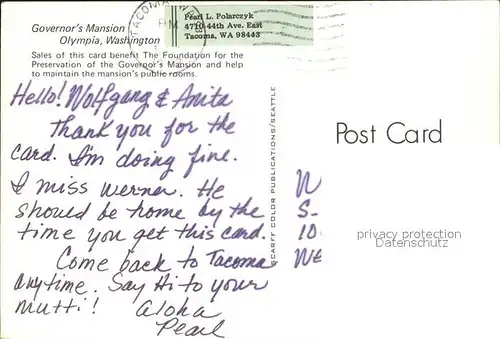 Governor's Mansion
Olympia, Washington
Sales of this card benefit The Foundation for the
Preservation of the Governor's Mansion and help
to maintain the mansion's public rooms.
TACOMA, WA
PM
Pearl L. Polarczyk
4710 44th Ave. East
Tacoma, WA 98443
Hello! Wolfgang & Anita
Thank you for the
card. I'm doing fine.
I miss Werner. He
should be home by the
time you get this card.
Come back to Tacoma
anytime. Say Hi to your
Mutti! Aloha
Pearl
SCARFF COLOR PUBLICATIONS/SEATTLE
Post Card
W
S-
10
WE
privacy protection
Datenschutz